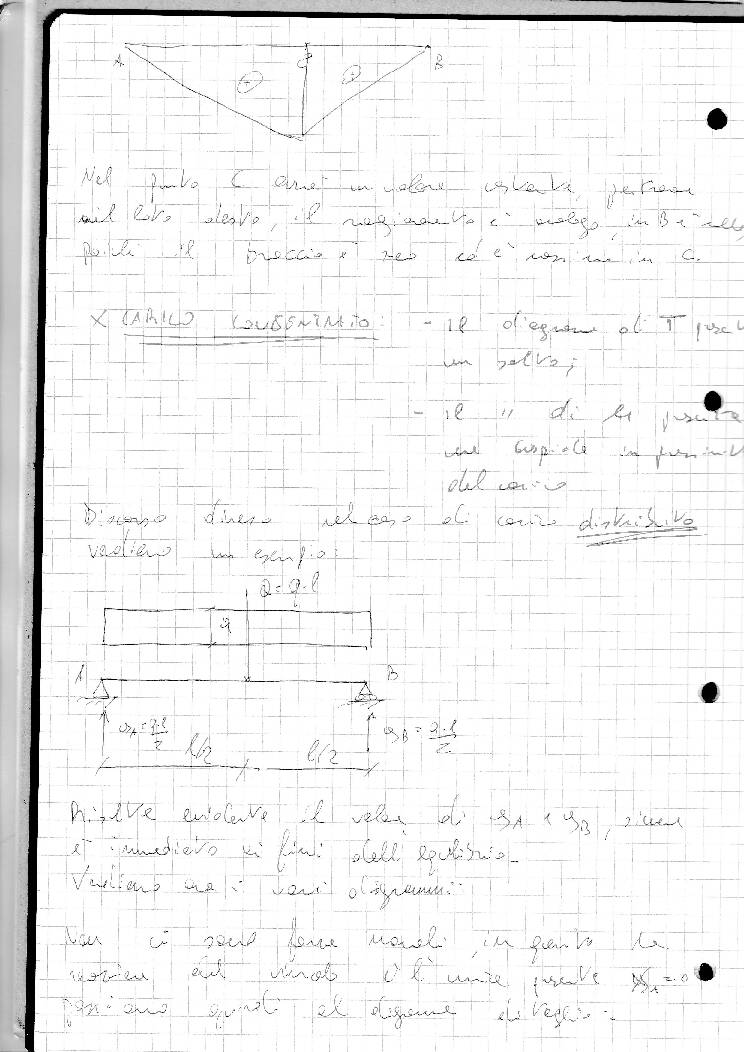 A C B
+ +
Nel punto C avrò un valore costante, per trovare
il lato destro, il ragionamento è analogo, in B è nullo
poiché il braccio è zero ed è massimo in C.
X CARICO CONCENTRATO: - Il diagramma di T presenta
un salto;
- Il " di M presenta
una cuspide in prossimità
del carico
Discorso diverso nel caso di carico distribuito
vediamo un esempio:
Q = q·l
q
A B
= q·l/2 l/2 l/2 = q·l/2
Risulta evidente il valore di e , siccome
è immediato ai fini dell'equilibrio.
Vediamo ora i vari diagrammi:
Non ci sono forze normali, in quanto la
reazione del vincolo è l'unica presente = 0
passiamo quindi al diagramma del taglio: